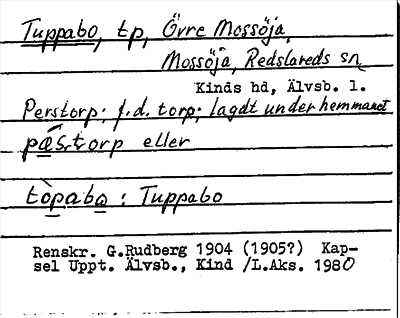 Tuppabo, tp, Övre Mossöja,
Mossöja, Redslareds sn,
Kinds hd, Älvsb. l.
Perstorp; f.d. torp; lagdt under hemmanet
pæ̀storp eller
tòpabo : Tuppabo
Renskr. G.Rudberg 1904 (1905?) Kap-
sel Uppt. Älvsb., Kind /L.Aks. 1980